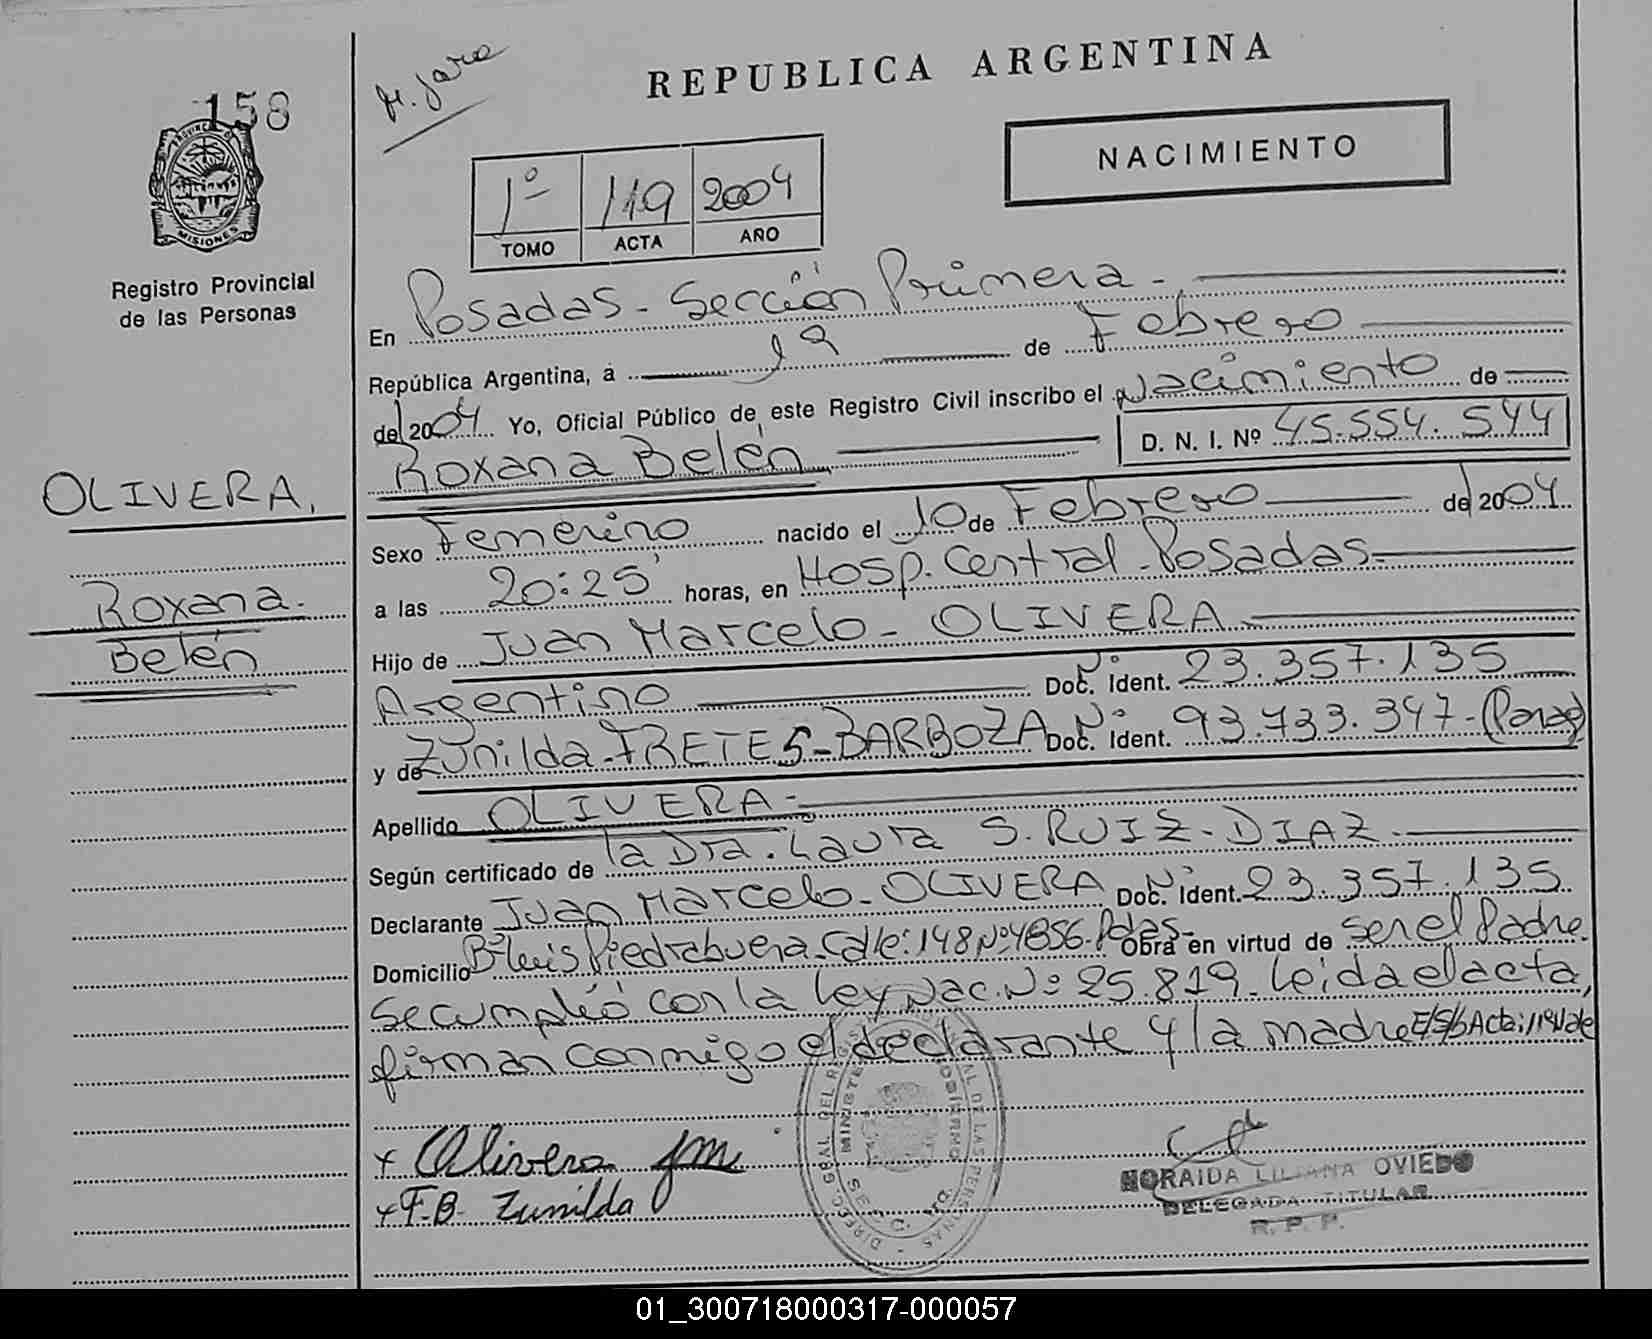 158
M. Jara
REPUBLICA ARGENTINA
NACIMIENTO
PROVINCIA DE
MISIONES
Registro Provincial
de las Personas
1º 119 2004
TOMO ACTA AÑO
En Posadas - Sección Primera -
República Argentina, a 19 de Febrero
de 2004 Yo, Oficial Público de este Registro Civil inscribo el Nacimiento de
Roxana Belén D. N. I. Nº 45.554.544
OLIVERA.
Roxana.
Belén
Sexo Femenino nacido el 10 de Febrero de 2004
a las 20:25' horas, en Hosp. Central - Posadas -
Hijo de Juan Marcelo - OLIVERA
Argentino Nº Doc. Ident. 23.357.135
y de Zunilda - FRETES - BARBOZA Nº Doc. Ident. 93.733.347 -
Apellido OLIVERA -
Según certificado de la Dra. Laura S. RUIZ - DIAZ
Declarante Juan Marcelo - OLIVERA Nº Doc. Ident. 23.357.135
Domicilio Bº Luis Piedrabuena - Calle: 148 Nº 4856 - Pdas - Obra en virtud de ser el Padre.
Se cumplió con la Ley Nac. Nº 25.819 - Leída el acta,
firman conmigo el declarante y la madre E/S/b Acta: 119 Vale
x Olivera JM
x F.B. Zunilda
NORAIDA LILIANA OVIEDO
DELEGADA TITULAR
R. P. P.
01_300718000317-000057